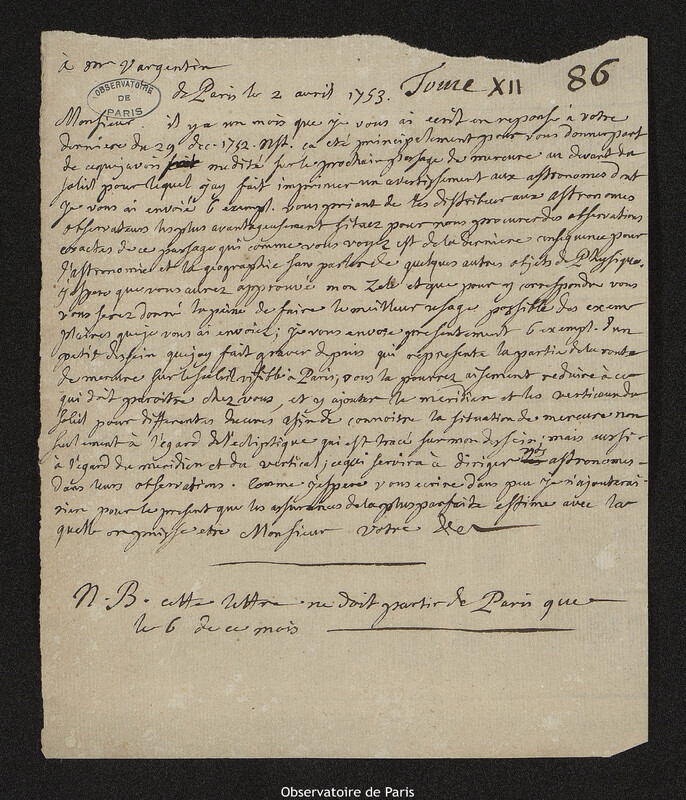 à Mr Vargentin
de Paris le 2 avril 1753. Tome XII 86
OBSERVATOIRE DE PARIS
Monsieur. il y a un mois que je vous ai ecrit en reponse à votre
derniere du 29 dec. 1752. nst. ca eté principalement pour vous donner part
de ce que j'avois medité sur le prochain passage de mercure au devant du
soleil pour lequel j'ay fait imprimer un avertissement aux astronomes dont
je vous ai envoié 6 exempl. vous priant de les distribuer aux astronomes
observateurs les plus avantageusement situez pour nous procurer des observations
exactes de ce passage qui comme vous voyez est de la derniere consequence pour
l'astronomie et la geographie sans parler de quelques autres objets de Physique.
j'espere que vous aurez approuvé mon Zele et que pour y correspondre vous
vous serez donné la peine de faire le meilleur usage possible des exem-
plaires que je vous ai envoiez; je vous envoye presentement 6 exempl. d'un
petit dessein que j'ay fait graver depuis qui represente la partie de la route
de mercure sur le soleil visible à Paris; vous la pourrez aisement reduire à ce
qui doit paroitre chez vous, et y ajouter le meridien et les verticaux du
soleil pour differentes heures afin de connoitre la situation de mercure non
seulement à l'egard de l'ecliptique qui est tracé sur mon dessein; mais aussi
à l'egard du meridien et du vertical; ce qui servira à diriger vos astronomes
dans leurs observations. Comme j'espere vous ecrire dans peu je n'ajouterai
rien pour le present que les assurances de la plus parfaite estime avec la
quelle on puisse etre Monsieur votre &c
N. B. cette lettre ne doit partir de Paris que
le 6 de ce mois
Observatoire de Paris